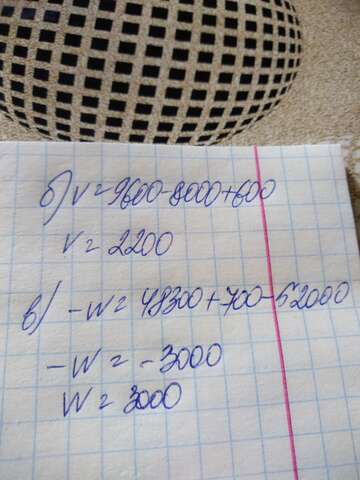 б) v = 9600 - 8000 + 600
v = 2200
в) -w = 48300 + 700 - 52000
-w = -3000
w = 3000